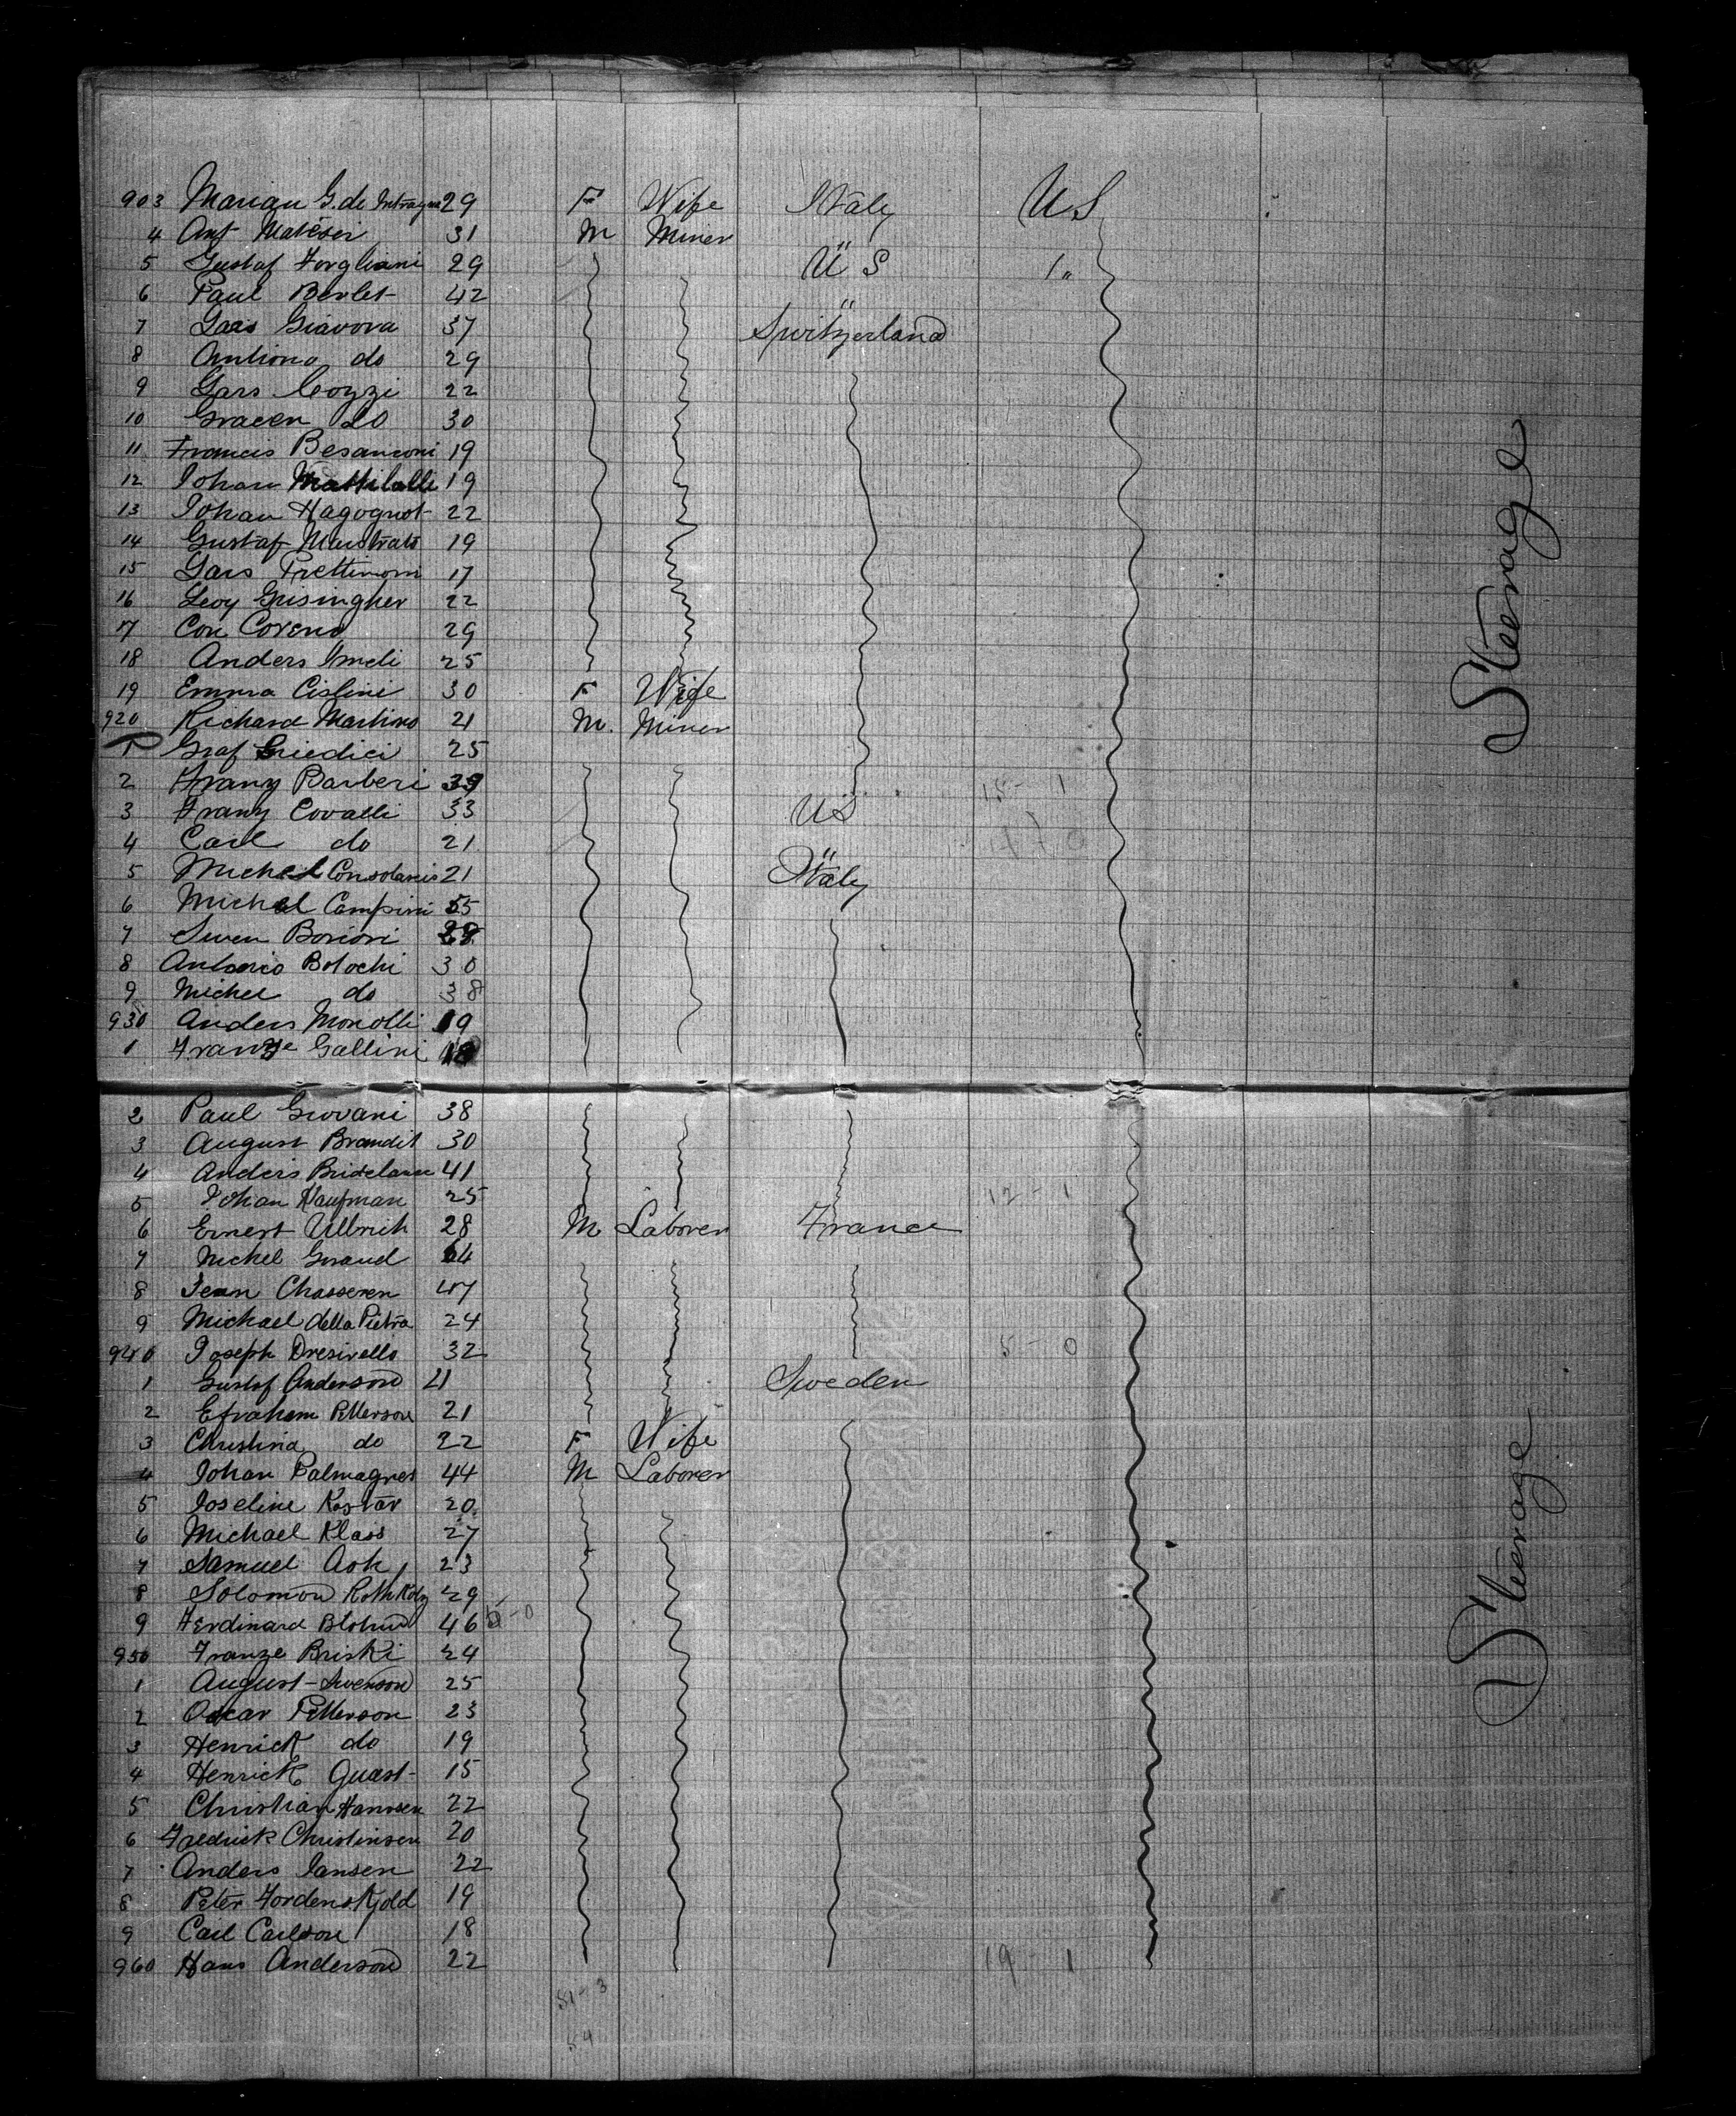 903 Marian G. de Intragna 29 F Wife Italy US
4 Ant Mateser 31 M Miner "
5 Gustaf Forgliani 29 U S 1 "
6 Paul Berlet 42 "
7 Lars Giavova 37 Switzerland
8 Antiono do 29
9 Lars Cozzi 22
10 Graeen do 30
11 Francis Besanconi 19
12 Johan 19
13 Johan Hagognot 22
14 Gustaf Maistrats 19
15 Lars Prettimoni 17
16 Levy Grisingher 22
17 Con Coreno 29
18 Anders Imeli 25
19 Emma Cislini 30 F Wife
920 Richard Martino 21 M. Miner
1 Graf 25
2 Franz Barberi 39 15 - 1
3 Franz Covalli 33 U S
4 Carl do 21 "
5 Michel Consolanis 21 Italy
6 Michel Campini 55
7 Swen Borioni
8 Antonio Bolochi 30
9 Michel do 38
930 Anders Monolli 19
1 Franze Gallini 18
2 Paul Giovani 38
3 August Brandit 30
4 Anders 41
5 Johan Kaufman 25 12 - 1
6 Ernest Ullrich 28 M Laborer France
7 Michel Giraud 64
8 Jean Chasseren 47
9 Michael della Pietra 24
940 Joseph Dresivello 32 5 - 0
1 Gustof Anderson 21 Sweden
2 Efraham Petterson 21
3 Christina do 22 F Wife
4 Johan Palmagnes 44 M Laborer
5 Joseline Kostar 20
6 Michael Klass 27
7 Samuel Ash 23
8 Solomon 29
9 Ferdinard Blohm 46 5 - 0
950 Franze Briski 24
1 August Swenson 25
2 Oscar Petterson 23
3 Henrick do 19
4 Henrick Quast 15
5 Christian Hanssen 22
6 Fredrick Christinsen 20
7 Anders Jansen 22
8 Peter Fordenskjold 19
9 Carl Carlson 18
960 Hans Anderson 22 19 - 1
51 - 3
54
Steerage
Steerage